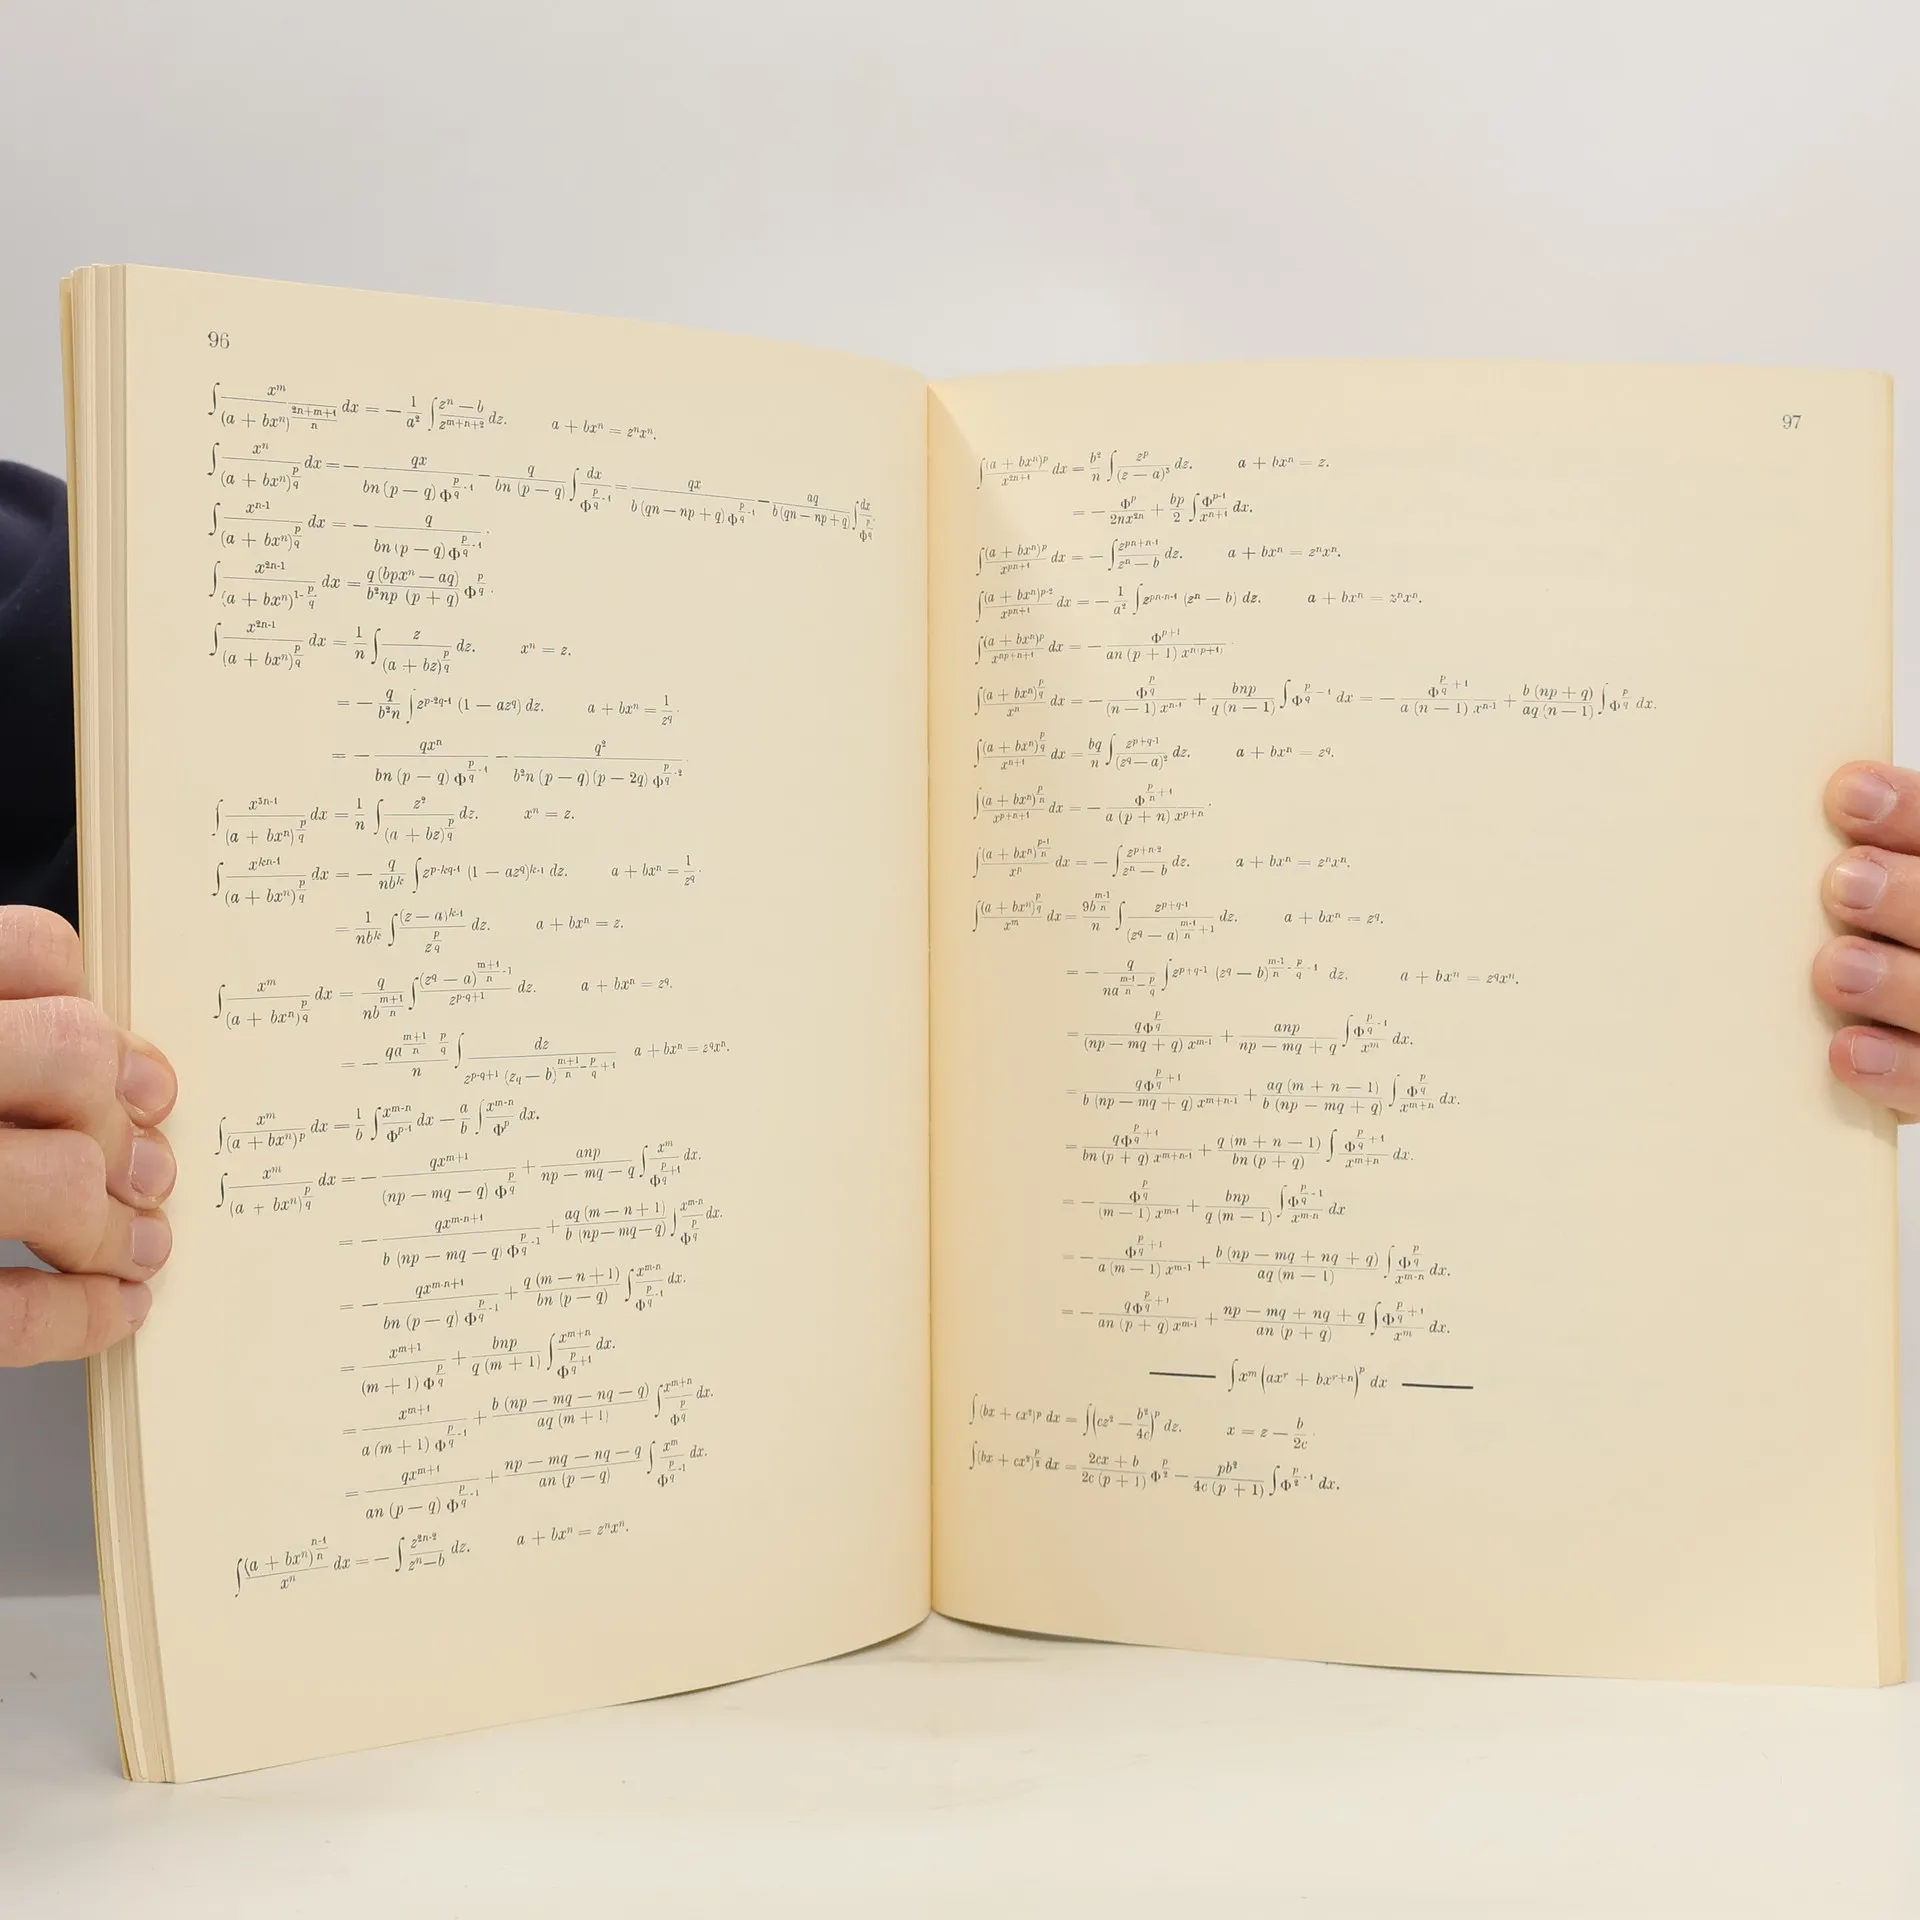 96
∫ x^m / (a + bx^n)^{(2n+m+1)/n} dx = − 1/a² ∫ (z^n − b)/z^{m+n+2} dz. a + bx^n = z^n x^n.
∫ x^n / (a + bx^n)^{p/q} dx = − qx / (bn (p − q) Φ^{p/q -1}) − q / (bn (p − q)) ∫ dx / Φ^{p/q -1} = qx / (b (qn − np + q) Φ^{p/q -1}) − aq / (b (qn − np + q)) ∫ dx / Φ^{p/q}.
∫ x^{n-1} / (a + bx^n)^{p/q} dx = − q / (bn (p − q) Φ^{p/q -1}).
∫ x^{2n-1} / (a + bx^n)^{1-p/q} dx = q (bpx^n − aq) / (b²np (p + q)) Φ^{p/q}.
∫ x^{2n-1} / (a + bx^n)^{p/q} dx = 1/n ∫ z / (a + bz)^{p/q} dz. x^n = z.
= − q / (b²n) ∫ z^{p-2q-1} (1 − az^q) dz. a + bx^n = 1/z^q.
= − qx^n / (bn (p − q) Φ^{p/q -1}) − q² / (b²n (p − q) (p − 2q) Φ^{p/q -2}).
∫ x^{3n-1} / (a + bx^n)^{p/q} dx = 1/n ∫ z² / (a + bz)^{p/q} dz. x^n = z.
∫ x^{kn-1} / (a + bx^n)^{p/q} dx = − q / (nb^k) ∫ z^{p-kq-1} (1 − az^q)^{k-1} dz. a + bx^n = 1/z^q.
= 1 / (nb^k) ∫ (z − a)^{k-1} / z^{p/q} dz. a + bx^n = z.
∫ x^m / (a + bx^n)^{p/q} dx = q / (nb^{(m+1)/n}) ∫ (z^q − a)^{(m+1)/n -1} / z^{p-q+1} dz. a + bx^n = z^q.
= − qa^{(m+1)/n p/q} / n ∫ dz / (z^{p-q+1} (z_q − b)^{(m+1)/n − p/q + 1}) a + bx^n = z^q x^n.
∫ x^m / (a + bx^n)^p dx = 1/b ∫ x^{m-n} / Φ^{p-1} dx − a/b ∫ x^{m-n} / Φ^p dx.
∫ x^m / (a + bx^n)^{p/q} dx = − qx^{m+1} / ((np − mq − q) Φ^{p/q}) + anp / (np − mq − q) ∫ x^m / Φ^{p/q +1} dx.
= − qx^{m-n+1} / (b (np − mq − q) Φ^{p/q -1}) + aq (m − n + 1) / (b (np − mq − q)) ∫ x^{m-n} / Φ^{p/q} dx.
= − qx^{m-n+1} / (bn (p − q) Φ^{p/q -1}) + q (m − n + 1) / (bn (p − q)) ∫ x^{m-n} / Φ^{p/q -1} dx.
= x^{m+1} / ((m + 1) Φ^{p/q}) + bnp / (q (m + 1)) ∫ x^{m+n} / Φ^{p/q +1} dx.
= x^{m+1} / (a (m + 1) Φ^{p/q -1}) + b (np − mq − nq − q) / (aq (m + 1)) ∫ x^{m+n} / Φ^{p/q} dx.
= qx^{m+1} / (an (p − q) Φ^{p/q -1}) + (np − mq − nq − q) / (an (p − q)) ∫ x^m / Φ^{p/q -1} dx.
∫ (a + bx^n)^{(n-1)/n} / x^n dx = − ∫ z^{2n-2} / (z^n − b) dz. a + bx^n = z^n x^n.
97
∫ (a + bx^n)^p / x^{2n+1} dx = b²/n ∫ z^p / (z − a)³ dz. a + bx^n = z.
= − Φ^p / (2nx^{2n}) + bp/2 ∫ Φ^{p-1} / x^{n+1} dx.
∫ (a + bx^n)^p / x^{pn+1} dx = − ∫ z^{pn+n-1} / (z^n − b) dz. a + bx^n = z^n x^n.
∫ (a + bx^n)^{p-2} / x^{pn+1} dx = − 1/a² ∫ z^{pn-n-1} (z^n − b) dz. a + bx^n = z^n x^n.
∫ (a + bx^n)^p / x^{np+n+1} dx = − Φ^{p+1} / (an (p + 1) x^{n(p+1)}).
∫ (a + bx^n)^{p/q} / x^n dx = − Φ^{p/q} / ((n − 1) x^{n-1}) + bnp / (q (n − 1)) ∫ Φ^{p/q −1} dx = − Φ^{p/q +1} / (a (n − 1) x^{n-1}) + b (np + q) / (aq (n − 1)) ∫ Φ^{p/q} dx.
∫ (a + bx^n)^{p/q} / x^{n+1} dx = bq/n ∫ z^{p+q-1} / (z^q − a)² dz. a + bx^n = z^q.
∫ (a + bx^n)^{p/n} / x^{p+n+1} dx = − Φ^{p/n +1} / (a (p + n) x^{p+n}).
∫ (a + bx^n)^{(p-1)/n} / x^p dx = − ∫ z^{p+n-2} / (z^n − b) dz. a + bx^n = z^n x^n.
∫ (a + bx^n)^{p/q} / x^m dx = 9b^{(m-1)/n} / n ∫ z^{p+q-1} / (z^q − a)^{(m-1)/n +1} dz. a + bx^n = z^q.
= − q / (na^{(m-1)/n − p/q}) ∫ z^{p+q-1} (z^q − b)^{(m-1)/n - p/q -1} dz. a + bx^n = z^q x^n.
= qΦ^{p/q} / ((np − mq + q) x^{m-1}) + anp / (np − mq + q) ∫ Φ^{p/q -1} / x^m dx.
= qΦ^{p/q +1} / (b (np − mq + q) x^{m+n-1}) + aq (m + n − 1) / (b (np − mq + q)) ∫ Φ^{p/q} / x^{m+n} dx.
= qΦ^{p/q +1} / (bn (p + q) x^{m+n-1}) + q (m + n − 1) / (bn (p + q)) ∫ Φ^{p/q +1} / x^{m+n} dx.
= − Φ^{p/q} / ((m − 1) x^{m-1}) + bnp / (q (m − 1)) ∫ Φ^{p/q -1} / x^{m-n} dx
= − Φ^{p/q +1} / (a (m − 1) x^{m-1}) + b (np − mq + nq + q) / (aq (m − 1)) ∫ Φ^{p/q} / x^{m-n} dx.
= − qΦ^{p/q +1} / (an (p + q) x^{m-1}) + (np − mq + nq + q) / (an (p + q)) ∫ Φ^{p/q +1} / x^m dx.
∫ x^m (ax^r + bx^{r+n})^p dx
∫ (bx + cx²)^p dx = ∫ (cz² − b²/4c)^p dz. x = z − b/2c.
∫ (bx + cx²)^{p/2} dx = (2cx + b) / (2c (p + 1)) Φ^{p/2} − pb² / (4c (p + 1)) ∫ Φ^{p/2 -1} dx.